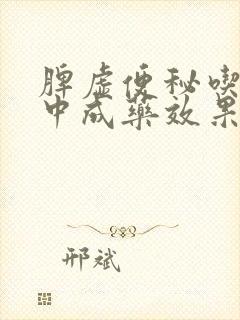 脾虚便秘喫
中成藥效果
邢斌